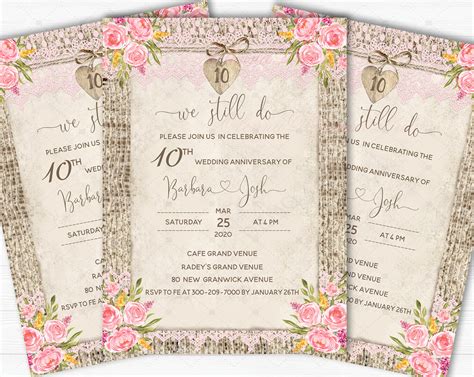 10
we still do
PLEASE JOIN US IN CELEBRATING THE
10TH WEDDING ANNIVERSARY OF
Barbara Josh
MAR
SATURDAY 25 AT 4 PM
2020
CAFE GRAND VENUE
RADEY'S GRAND VENUE
80 NEW GRANWICK AVENUE
RSVP TO FE AT 300-209-7000 BY JANUARY 26TH
10
we
PLEASE JOIN US
10TH
Barba
SATURDAY
CAFE
RADEY
80 NEW
RSVP TO FE AT
10
still do
IN CELEBRATING THE
WEDDING ANNIVERSARY OF
Josh
MAR
25 AT 4 PM
2020
VENUE
VENUE
AVENUE
BY JANUARY 26TH